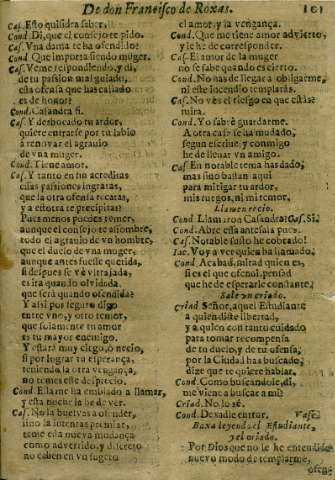 De don Francisco de Roxas. 101
Cas. Esto quisiera saber.
Cond. Di, que el consejo te pido.
Cas. Vna dama te ha ofendido?
Cond. Que importa siendo muger.
Cas. Ve me respondiendo, y di,
de tu passion mal guiado,
esta ofensa que has callado
es de honor?
Cond. Casandra si.
Cas. Y desbocado tu ardor,
quiere entrarse por tu labio
à renovar el agrauio
de vna muger.
Cond. Tiene amor.
Cas. Y tanto en tu acreditas
essas passiones ingratas,
que la otra ofensa recatas,
y a estotra te precipitas?
Pues menos puedes temer,
aunque el consejo te assombre,
todo el agrauio de vn hombre,
que el duelo de vna muger.
aunque antes fuesse querida,
si despues se vè vltrajada,
es ira quando oluidada.
que serà quando ofendida?
Y assi por seguro digo
entre vno, y otro temor,
que solamente tu amor
es tu mayor enemigo.
Y estarà muy ciego, ò necio,
si por lograr tu esperança,
teniendo la otra vengança,
no temes este desprecio.
Cond. Ella me ha embiado a llamar,
y esta noche la he de ver.
Cas. No la buelvas a ofender,
sino la intentas premiar,
teme essa nueva mudança
como advertido, y discreto
no caben en vn sugeto
el amor, y la vengança.
Cond. Que me tiene amor advierto,
y le hè de corresponder.
Cas. El amor de la muger
no se sabe quando es cierto.
Cond. No has de llegar a obligarme,
ni este incendio templaràs.
Cas. No vès el riesgo en que estàs?
mira.
Cond. Yo sabrè guardarme.
A otra casa se ha mudado,
segun escriue, y conmigo
he de lleuar vn amigo.
Cas. En notable tema has dado;
mas sino bastan aqui
para mitigar tu ardor,
mis ruegos, ni mi temor.
Llamen recio.
Cond. Llamaron Casandra? Cas. Si.
Cond. Abre essa antesala pues.
Cas. Notable susto he cobrado!
Iac. Voy a ver quien ha llamado.
Cond. Acabad, mirad quien es,
si es el que ofendi, pensad
que he de esperarle constante.
Sale vn criado.
Criad. Señor, aquel Estudiante
a quien diste libertad,
y a quien con tanto cuidado
para tomar recompensa
de tu duelo, y de tu ofensa,
por la Ciudad has buscado,
dize que te quiere hablar.
Cond. Como buscandole, di,
me viene a buscar a mi?
Criad. No lo sè.
Cond. Dexadle entrar. Vase.
Baxa leyendo el Estudiante,
y el criado.
Por Dios que no le he entendido
nuevo modo de templarme,
ofen-